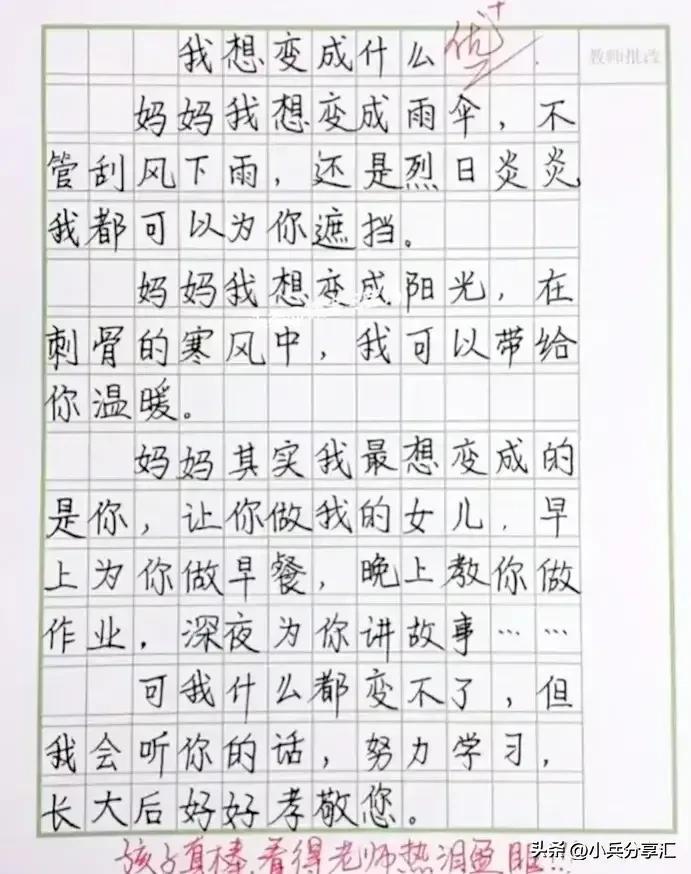 我想变成什么 优+
教师批改
妈妈我想变成雨伞，不
管刮风下雨，还是烈日炎炎
我都可以为你遮挡。
妈妈我想变成阳光，在
刺骨的寒风中，我可以带给
你温暖。
妈妈其实我最想变成的
是你，让你做我的女儿，早
上为你做早餐，晚上教你做
作业，深夜为你讲故事……
可我什么都变不了，但
我会听你的话，努力学习，
长大后好好孝敬您。
孩子真棒，看得老师热泪盈眶…
头条@小兵分享汇